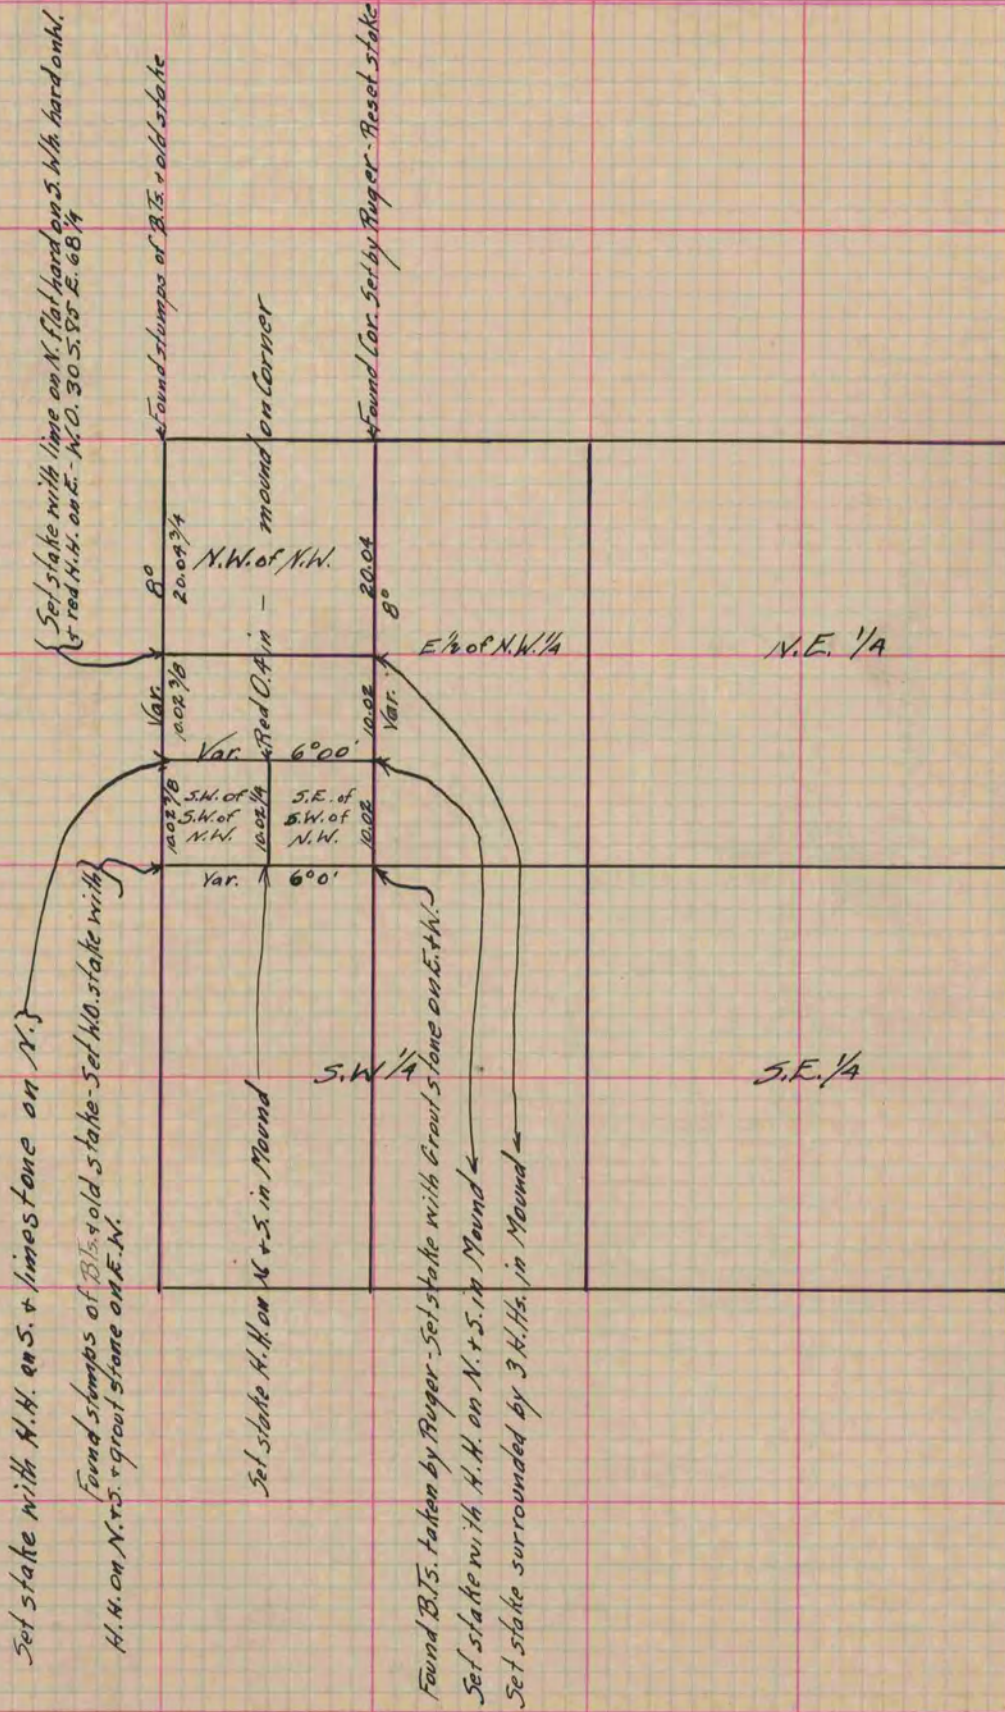 {Set stake with lime on N. flat hard on S. Wh. hard on W.
+ red H.H. on E. - W.O. 30 S. 85 E. 68 1/4
Found stumps of B.Ts. + old stake
Found Cor. Set by Ruger - Reset stake
8°
20.04 3/4
N.W. of N.W.
20.04
8°
Red O. 4 in - mound on Corner
E 1/2 of N.W. 1/4
N.E. 1/4
Var.
10.02 3/8
10.02
Var.
Var. 6°00'
10.02 3/8
S.W. of
S.W. of
N.W.
10.02 1/4
S.E. of
S.W. of
N.W.
10.02
Var. 6°0'
S.W 1/4
S.E. 1/4
Set stake with H.H. on S. + limestone on N.}
Found stumps of B.Ts. + old stake - Set W.O. stake with
H.H. on N. + S. + grout stone on E. W.
Set stake H.H. on N + S. in Mound
Found B.Ts. taken by Ruger - Set stake with Grout stone on E. + W.
Set stake with H.H. on N. + S. in Mound
Set stake surrounded by 3 H.Hs. in Mound